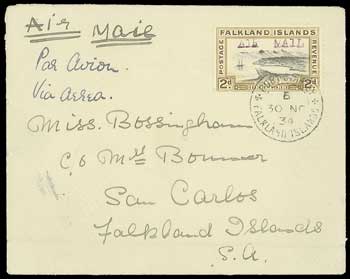 Air Mail
FALKLAND ISLANDS
POSTAGE
AIR MAIL
REVENUE
2d
2d
Par Avion.
Via Aerea.
PORT
E
30 NO
34
FALKLAND ISLANDS
Miss. Bossingham
C/o Mrs Bonner
San Carlos
Falkland Islands
S.A.